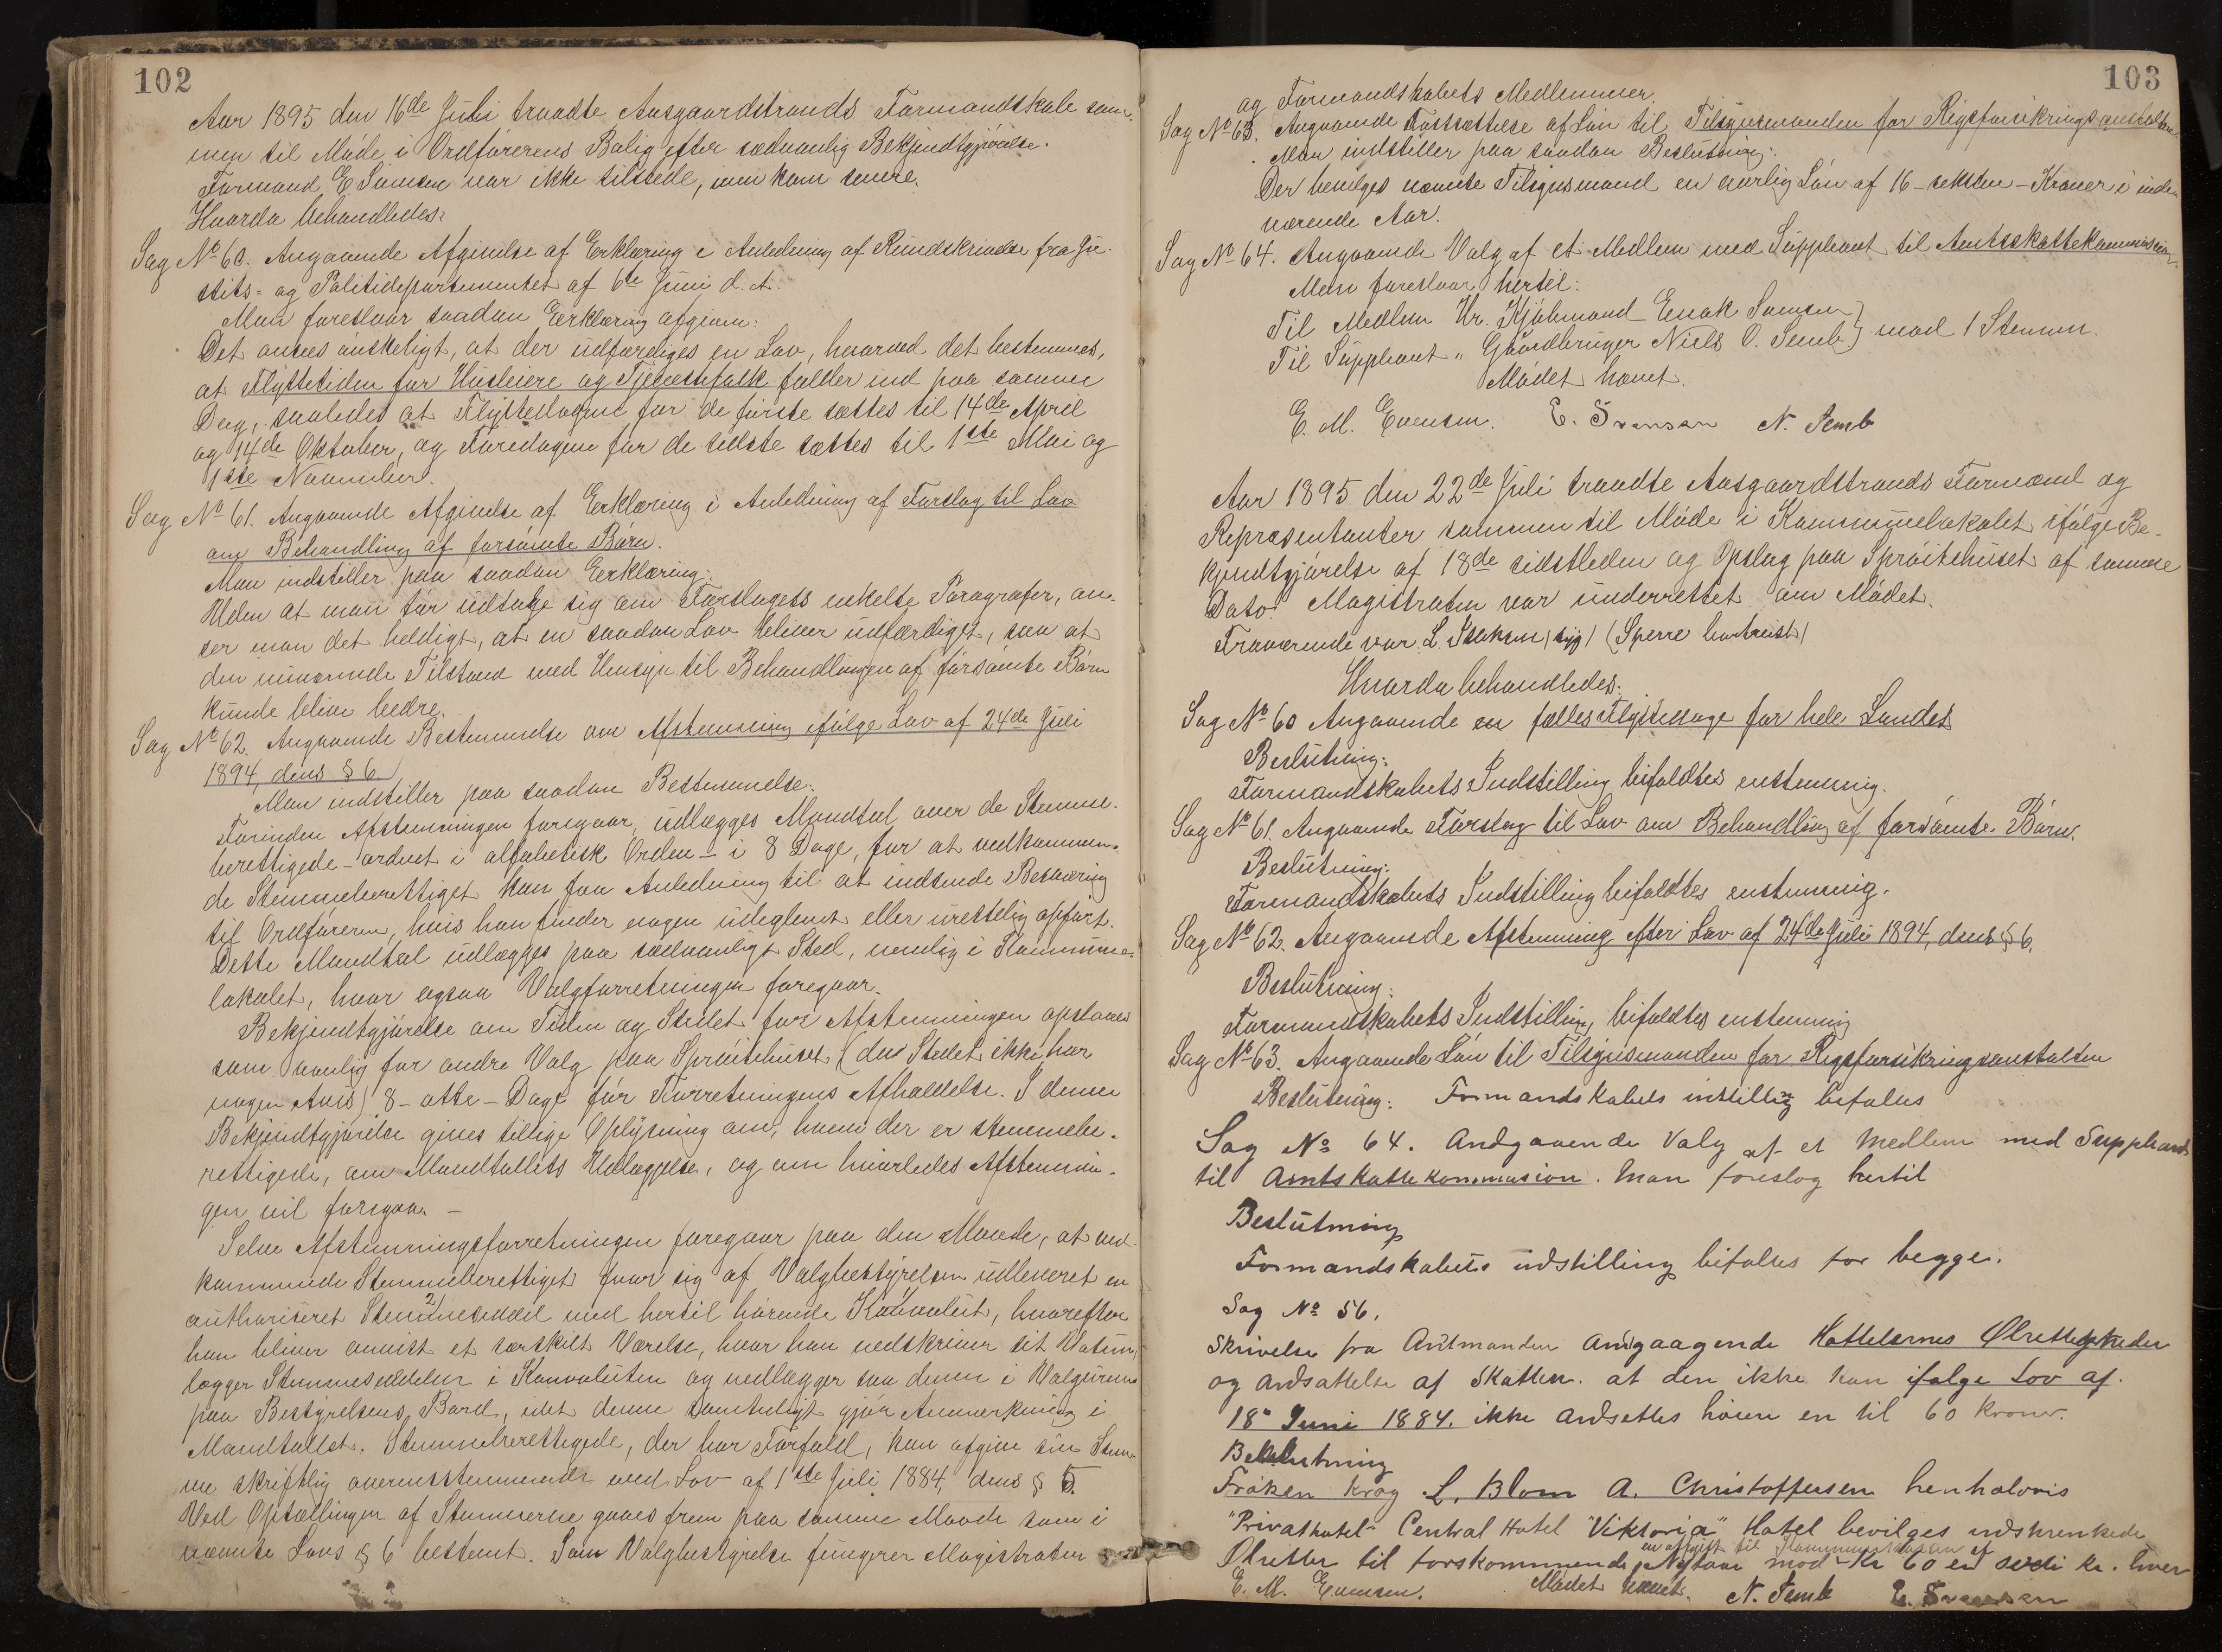 102
Aar 1895 den 16de Juli traadte Aasgaardstrands Formandskab sam-
men til Møde i Ordførerens Bolig efter sædvanlig Bekjendtgjørelse.
Formand E Svensen var ikke tilstede, men kom senere.
Hvorda behandledes:
Sag No 60. Angaaende Afgivelse af Erklæring i Anledning af Rundskrivelse fra Ju-
stits- og Politidepartementet af 6te Juni d. A.
Man foreslaar saadan Erklæring afgiven:
Det ansees ønskeligt, at der udfærdiges en Lov, hvorved det bestemmes,
at Flyttetiden for Husleiere og Tjenestefolk falder ind paa samme
Dag, saaledes at Flyttedagene for de første sættes til 14de April
og 14de Oktober, og Faredagene for de sidste sættes til 1ste Mai og
1ste November.
Sag No 61. Angaaende Afgivelse af Erklæring i Anledning af Forslag til Lov
om Behandling af forsømte Børn.
Man indstiller paa saadan Erklæring:
Uden at man tør udtale sig om Forslagets enkelte Paragrafer, an-
ser man det heldigt, at en saadan Lov bliver udfærdiget, saa at
den nuværende Tilstand med Hensyn til Behandlingen af forsømte Børn
kunde blive bedre.
Sag No 62. Angaaende Bestemmelse om Afstemning ifølge Lov af 24de Juli
1894, dens § 6
Man indstiller paa saadan Bestemmelse:
Forinden Afstemningen foregaar, udlægges Mandtal over de Stemme-
berettigede - ordnet i alfabetisk Orden - i 8 Dage, for at vedkommen-
de Stemmeberettiget kan faa Anledning til at indsende Besværing
til Ordføreren, hvis han finder nogen udeglemt eller urettelig opført.
Dette Mandtal udlægges paa sædvanligt Sted, nemlig i Kommune-
lokalet, hvor ogsaa Valgforretningen foregaar.
Bekjendtgjørelse om Tiden og Stedet for Afstemningen opslaaes
som vanlig for andre Valg paa Sprøitehuset (da Stedet ikke har
nogen Avis) 8 - otte - Dage før Forretningens Afholdelse. I denne
Bekjendtgjørelse gives tillige Oplysning om, hvem der er stemmebe-
rettigede, om Mandtallets Udlæggelse, og om hvorledes Afstemnin-
gen vil foregaa. -
Selve Afstemningsforretningen foregaar paa den Maade, at ved-
kommende Stemmeberettiget faar sig af Valgbestyrelsen udleveret en
authoriseret Stemmeseddel med hertil hørende Konvolut, hvorefter
han bliver anvist et særskilt Værelse, hvor han nedskriver sit Votum,
lægger Stemmesedelen i Konvoluten og nedlægger saa denne i Valgurnen
paa Bestyrelsens Bord, idet denne samtidigt gjør Anmerkning i
Mandtallet. Stemmeberettigede, der har Forfald, kan afgive sin Stem-
me skriftlig overensstemmende med Lov af 1ste Juli 1884, dens § 5.
Ved Optællingen af Stemmerne gaaes frem paa samme Maade som i
nævnte Lovs § 6 bestemt. Som Valgbestyrelse fungerer Magistraten
103
og Formandskabets Medlemmer.
Sag No 63. Angaaende Fastsættelse af Løn til Tilsynsmanden for Rigsforsikringsanstalten
Man indstiller paa saadan Beslutning:
Der bevilges nævnte Tilsynsmand en aarlig Løn af 16 - seksten - Kroner i inde-
værende Aar.
Sag No 64. Angaaende Valg af et Medlem med Suppleant til Amtsskattekommission.
Man foreslaar hertil:
Til Medlem Hr. Kjøbmand Enok Samsen
Til Suppleant " Gaardbruger Niels O. Semb } mod 1 Stemme.
Mødet hævet.
E. M. Evensen. E. Svensen N. Semb
Aar 1895 den 22de Juli traadte Aasgaardstrands Formænd og
Repræsentanter sammen til Møde i Kommunelokalet ifølge Be-
kjendtgjørelse af 18de sidstleden og Opslag paa Sprøitehuset af samme
Dato. Magistraten var underrettet om Mødet.
Fraværende var L. Isaksen (syg) (Sperre bortreist)
Hvorda behandledes:
Sag No 60 Angaaende en fælles Flyttedage for hele Landet
Beslutning:
Formandskabets Indstilling bifaldtes enstemmig.
Sag No 61. Angaaende Forslag til Lov om Behandling af forsømte Børn.
Beslutning:
Formandskabets Indstilling bifaldtes enstemmig.
Sag No 62. Angaaende Afstemning efter Lov af 24de Juli 1894, dens § 6.
Beslutning:
Formandskabets Indstilling bifaldtes enstemmig
Sag No 63. Angaaende Løn til Tilsynsmanden for Rigsforsikringsanstalten
Beslutning: Formandskabets instilling bifaldes
Sag No 64. Andgaaende Valg af et Medlem med Suppleant
til Amtskattekommision. Man foreslog hertil
Beslutning
Formandskabets indstilling bifaldes for begge.
Sag No 56.
Skrivelse fra Amtmanden andgaagende Hottelernes Ølrettigheder
og andsattelse af Skatten. at den ikke kan ifølge Lov af
18de Juni 1884. ikke andsettes høiere en til 60 kroner.
Beslutning
Frøken Krog L. Blom A. Christoffersen henholdvis
"Privathotel" Central Hotel "Viktoria" Hotel bevilges indskrenkede
en afgift til Kommunekassen af
Ølretter til førskommende Nytaar mod Kr 60 en kr. hver
E. M. Evensen. Mødet hævet. N. Semb E. Svensen